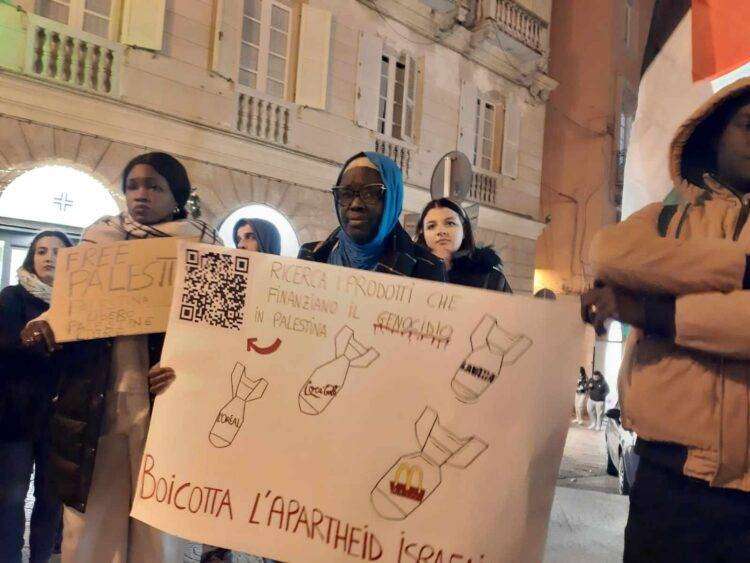 FREE
PALESTI
PALESTINA
LIBERO
PALESTINE
RICERCA I PRODOTTI CHE
FINANZIANO IL GENOCIDIO
IN PALESTINA
L'OREAL
Coca Cola
BOICOTTA L'APARTHEID ISRAE